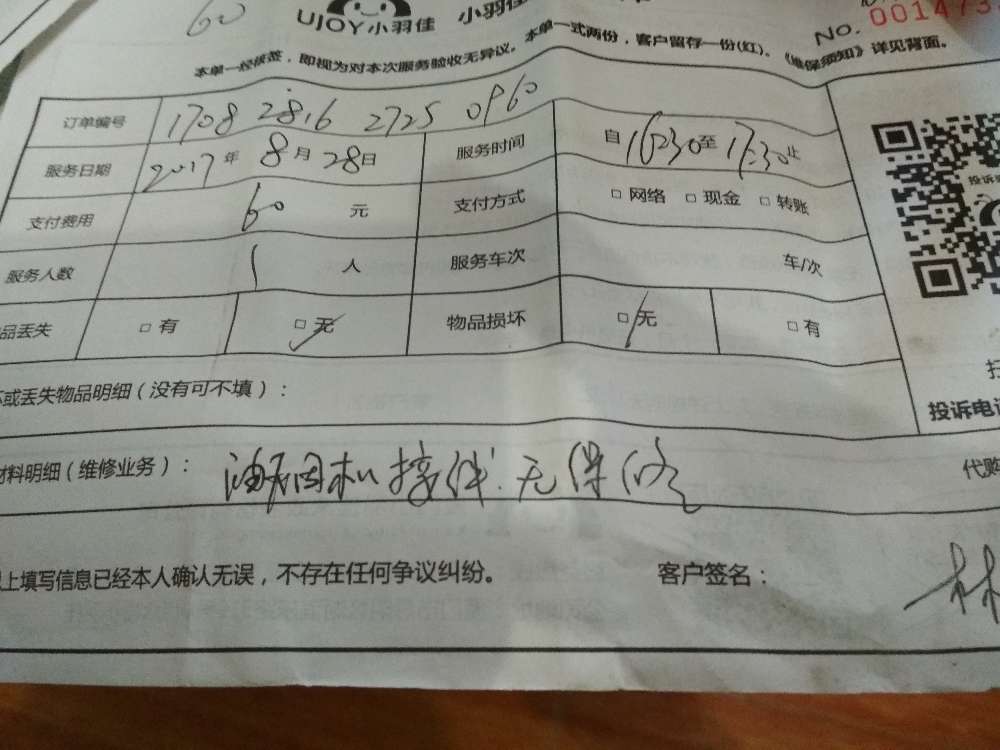 60
UJOY小羽佳 小羽佳
No. 001473
本单一经核签，即视为对本次服务验收无异议。本单一式两份，客户留存一份(红)。《维保须知》详见背面。
订单编号 1708 2816 2725 0960
服务日期 2017年8月28日 服务时间 自16:30至17:30止
支付费用 60 元 支付方式 □ 网络 □ 现金 □ 转账
服务人数 1 人 服务车次 车/次
品丢失 □ 有 □ 无 物品损坏 □ 无 □ 有
或丢失物品明细（没有可不填）：
投诉电
材料明细（维修业务）： 油烟机接线 无保修
代购
上填写信息已经本人确认无误，不存在任何争议纠纷。 客户签名： 林